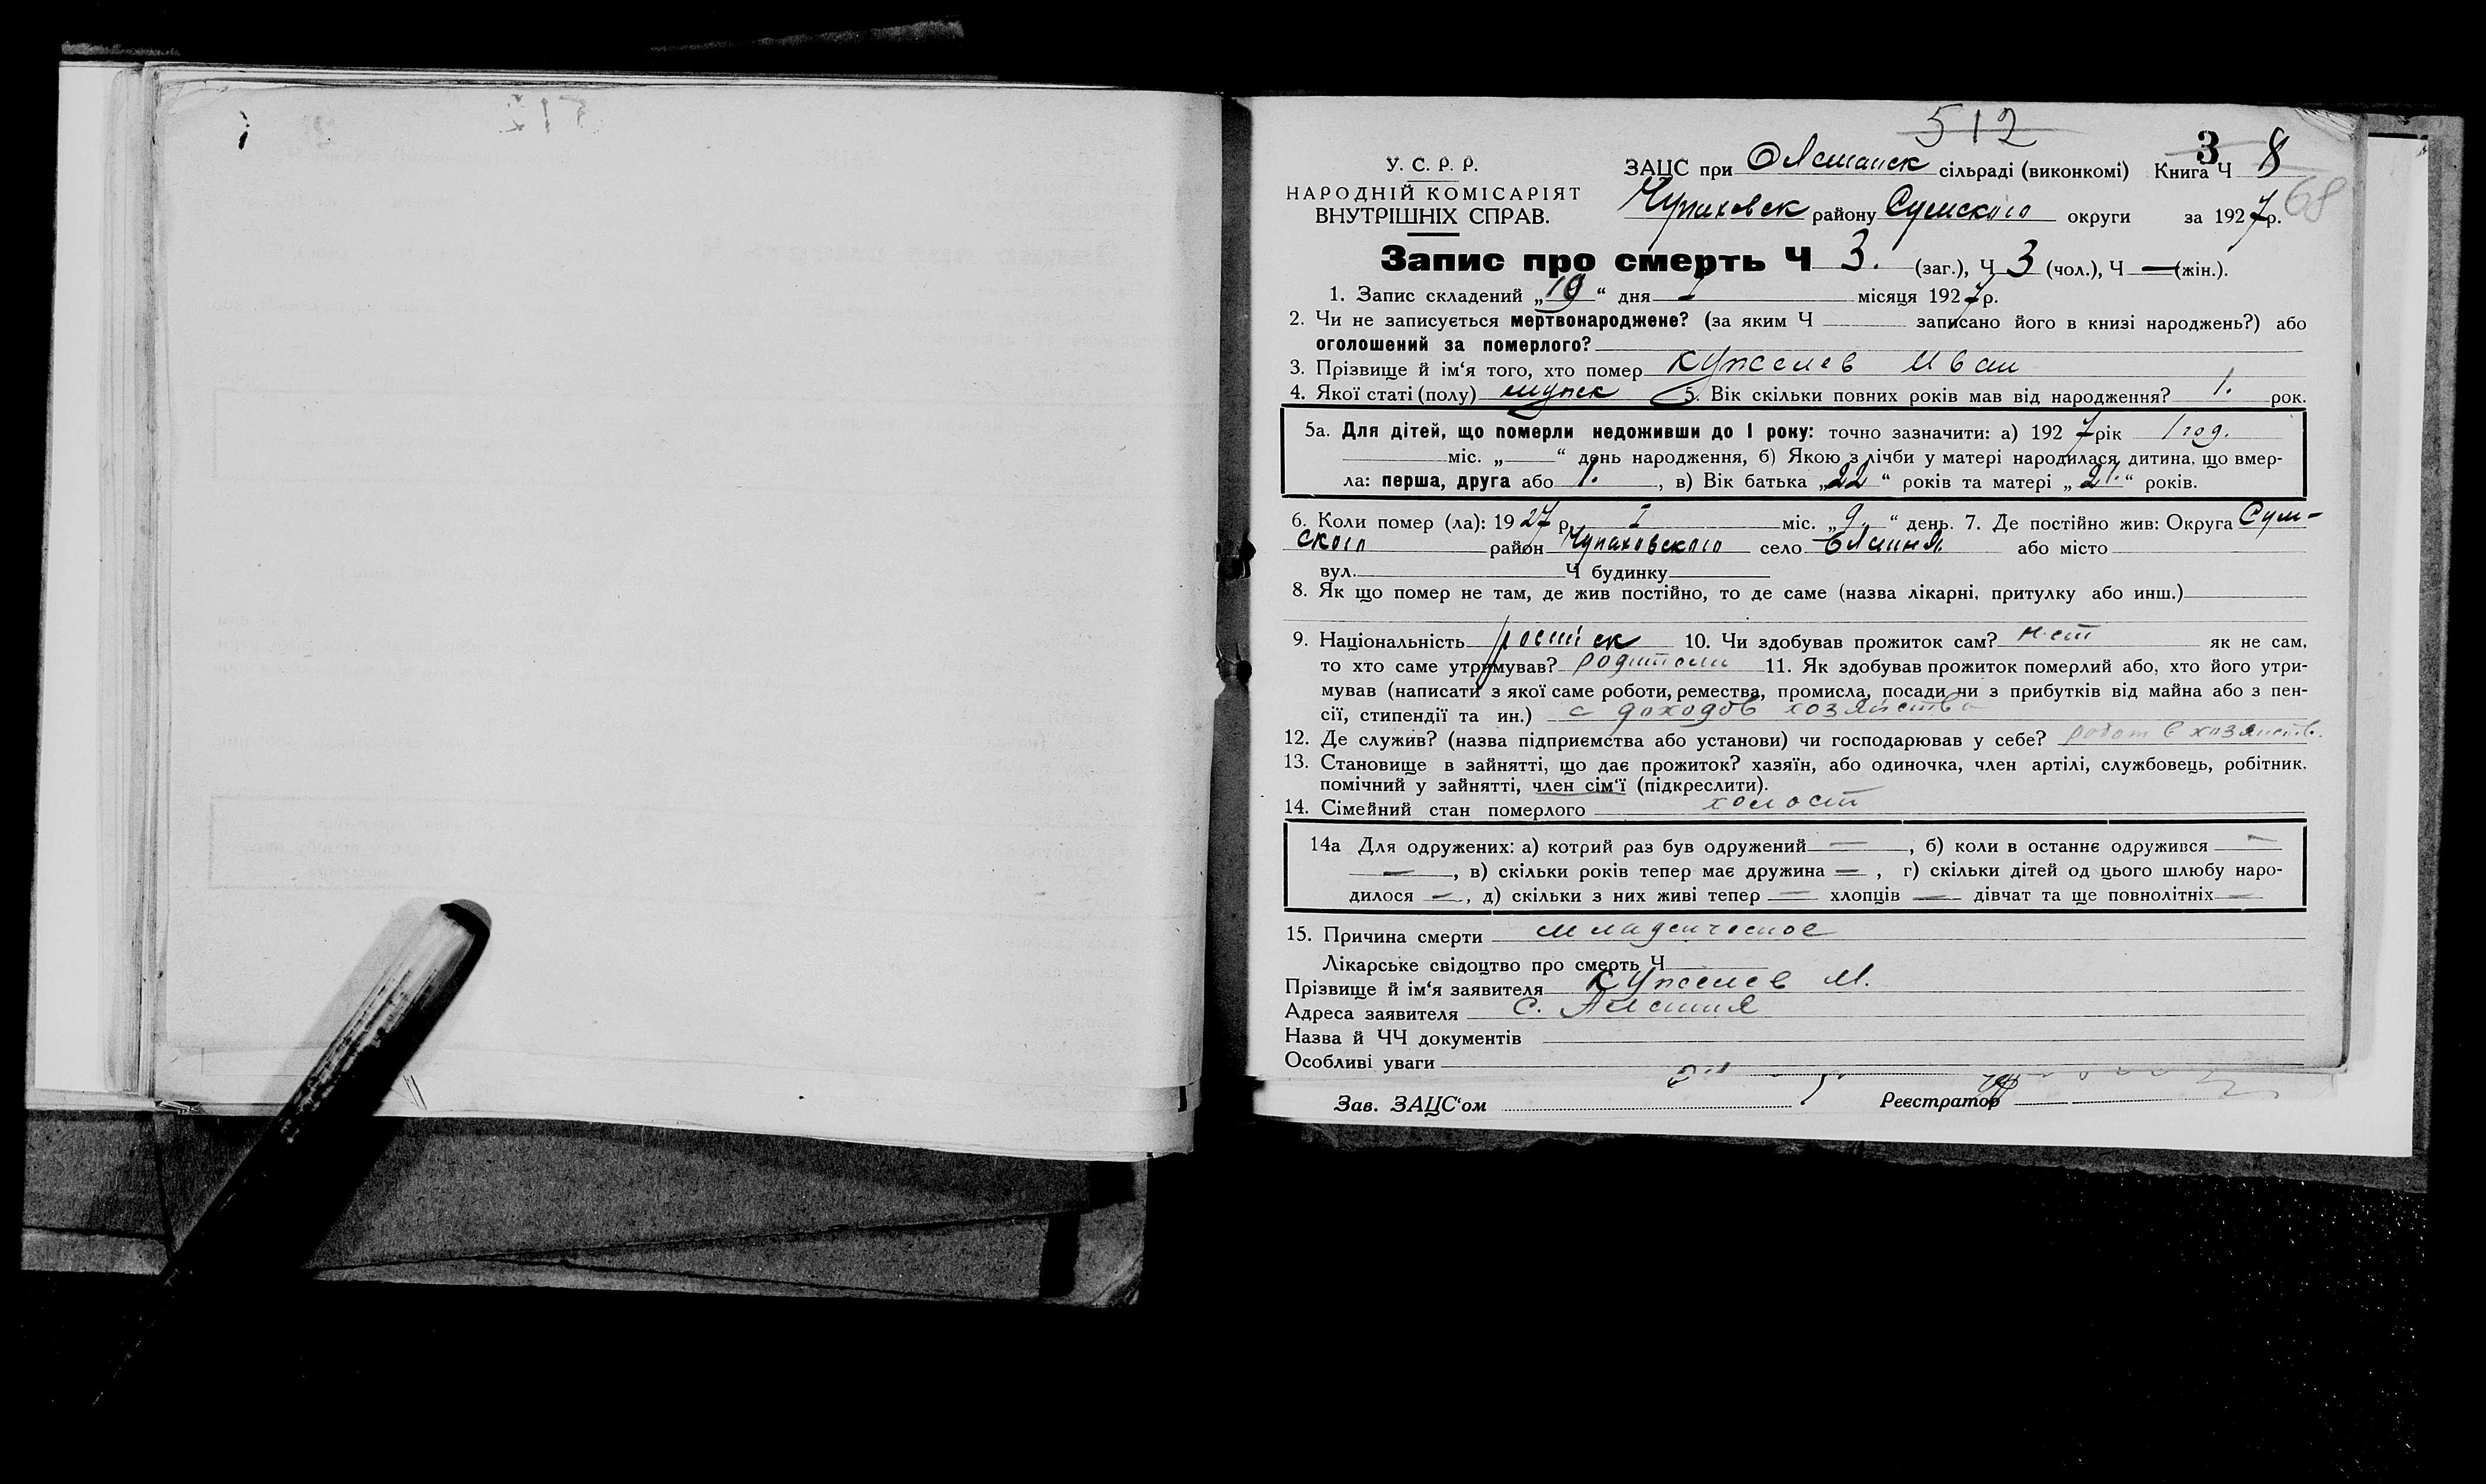 512
У. С. Р. Р.
НАРОДНІЙ КОМІСАРІЯТ
ВНУТРІШНІХ СПРАВ.
ЗАЦС при сільраді (виконкомі) Книга Ч 3 8
68
Чупаховск району Сумского округи за 1927 р.
Запис про смерть Ч 3. (заг.), Ч 3 (чол.), Ч — (жін.).
1. Запис складений „19“ дня I місяця 1927 р.
2. Чи не записується мертвонароджене? (за яким Ч записано його в книзі народжень?) або
оголошений за померлого?
3. Прізвище й ім‘я того, хто помер Кужелев Иван
4. Якої статі (полу) мужск 5. Вік скільки повних років мав від народження? 1. рок.
5а. Для дітей, що померли недоживши до 1 року: точно зазначити: а) 1927 рік 1 год.
міс. „ “ день народження, б) Якою з лічби у матері народилася дитина, що вмер-
ла: перша, друга або 1., в) Вік батька „22“ років та матері „21.“ років.
6. Коли помер (ла): 1927 р. I міс. „9.“ день. 7. Де постійно жив: Округа Сум-
ского район Чупаховского село або місто
вул. Ч будинку
8. Як що помер не там, де жив постійно, то де саме (назва лікарні, притулку або инш.)
9. Національність 10. Чи здобував прожиток сам? нет як не сам,
то хто саме утримував? родители 11. Як здобував прожиток померлий або, хто його утри-
мував (написати з якої саме роботи, ремества, промисла, посади чи з прибутків від майна або з пен-
сії, стипендії та ин.) с доходов хозяйства
12. Де служив? (назва підприємства або установи) чи господарював у себе? работ в хозяйств.
13. Становище в зайнятті, що дає прожиток? хазяїн, або одиночка, член артілі, службовець, робітник,
помічний у зайнятті, член сім‘ї (підкреслити).
14. Сімейний стан померлого холост
14а Для одружених: а) котрий раз був одружений —, б) коли в останнє одружився —
—, в) скільки років тепер має дружина —, г) скільки дітей од цього шлюбу наро-
дилося —, д) скільки з них живі тепер — хлопців — дівчат та ще повнолітніх —
15. Причина смерти младенческое
Лікарське свідоцтво про смерть Ч
Прізвище й ім‘я заявителя Кужелев И.
Адреса заявителя с. Алешня
Назва й ЧЧ документів
Особливі уваги
Зав. ЗАЦС‘ом Реєстратор